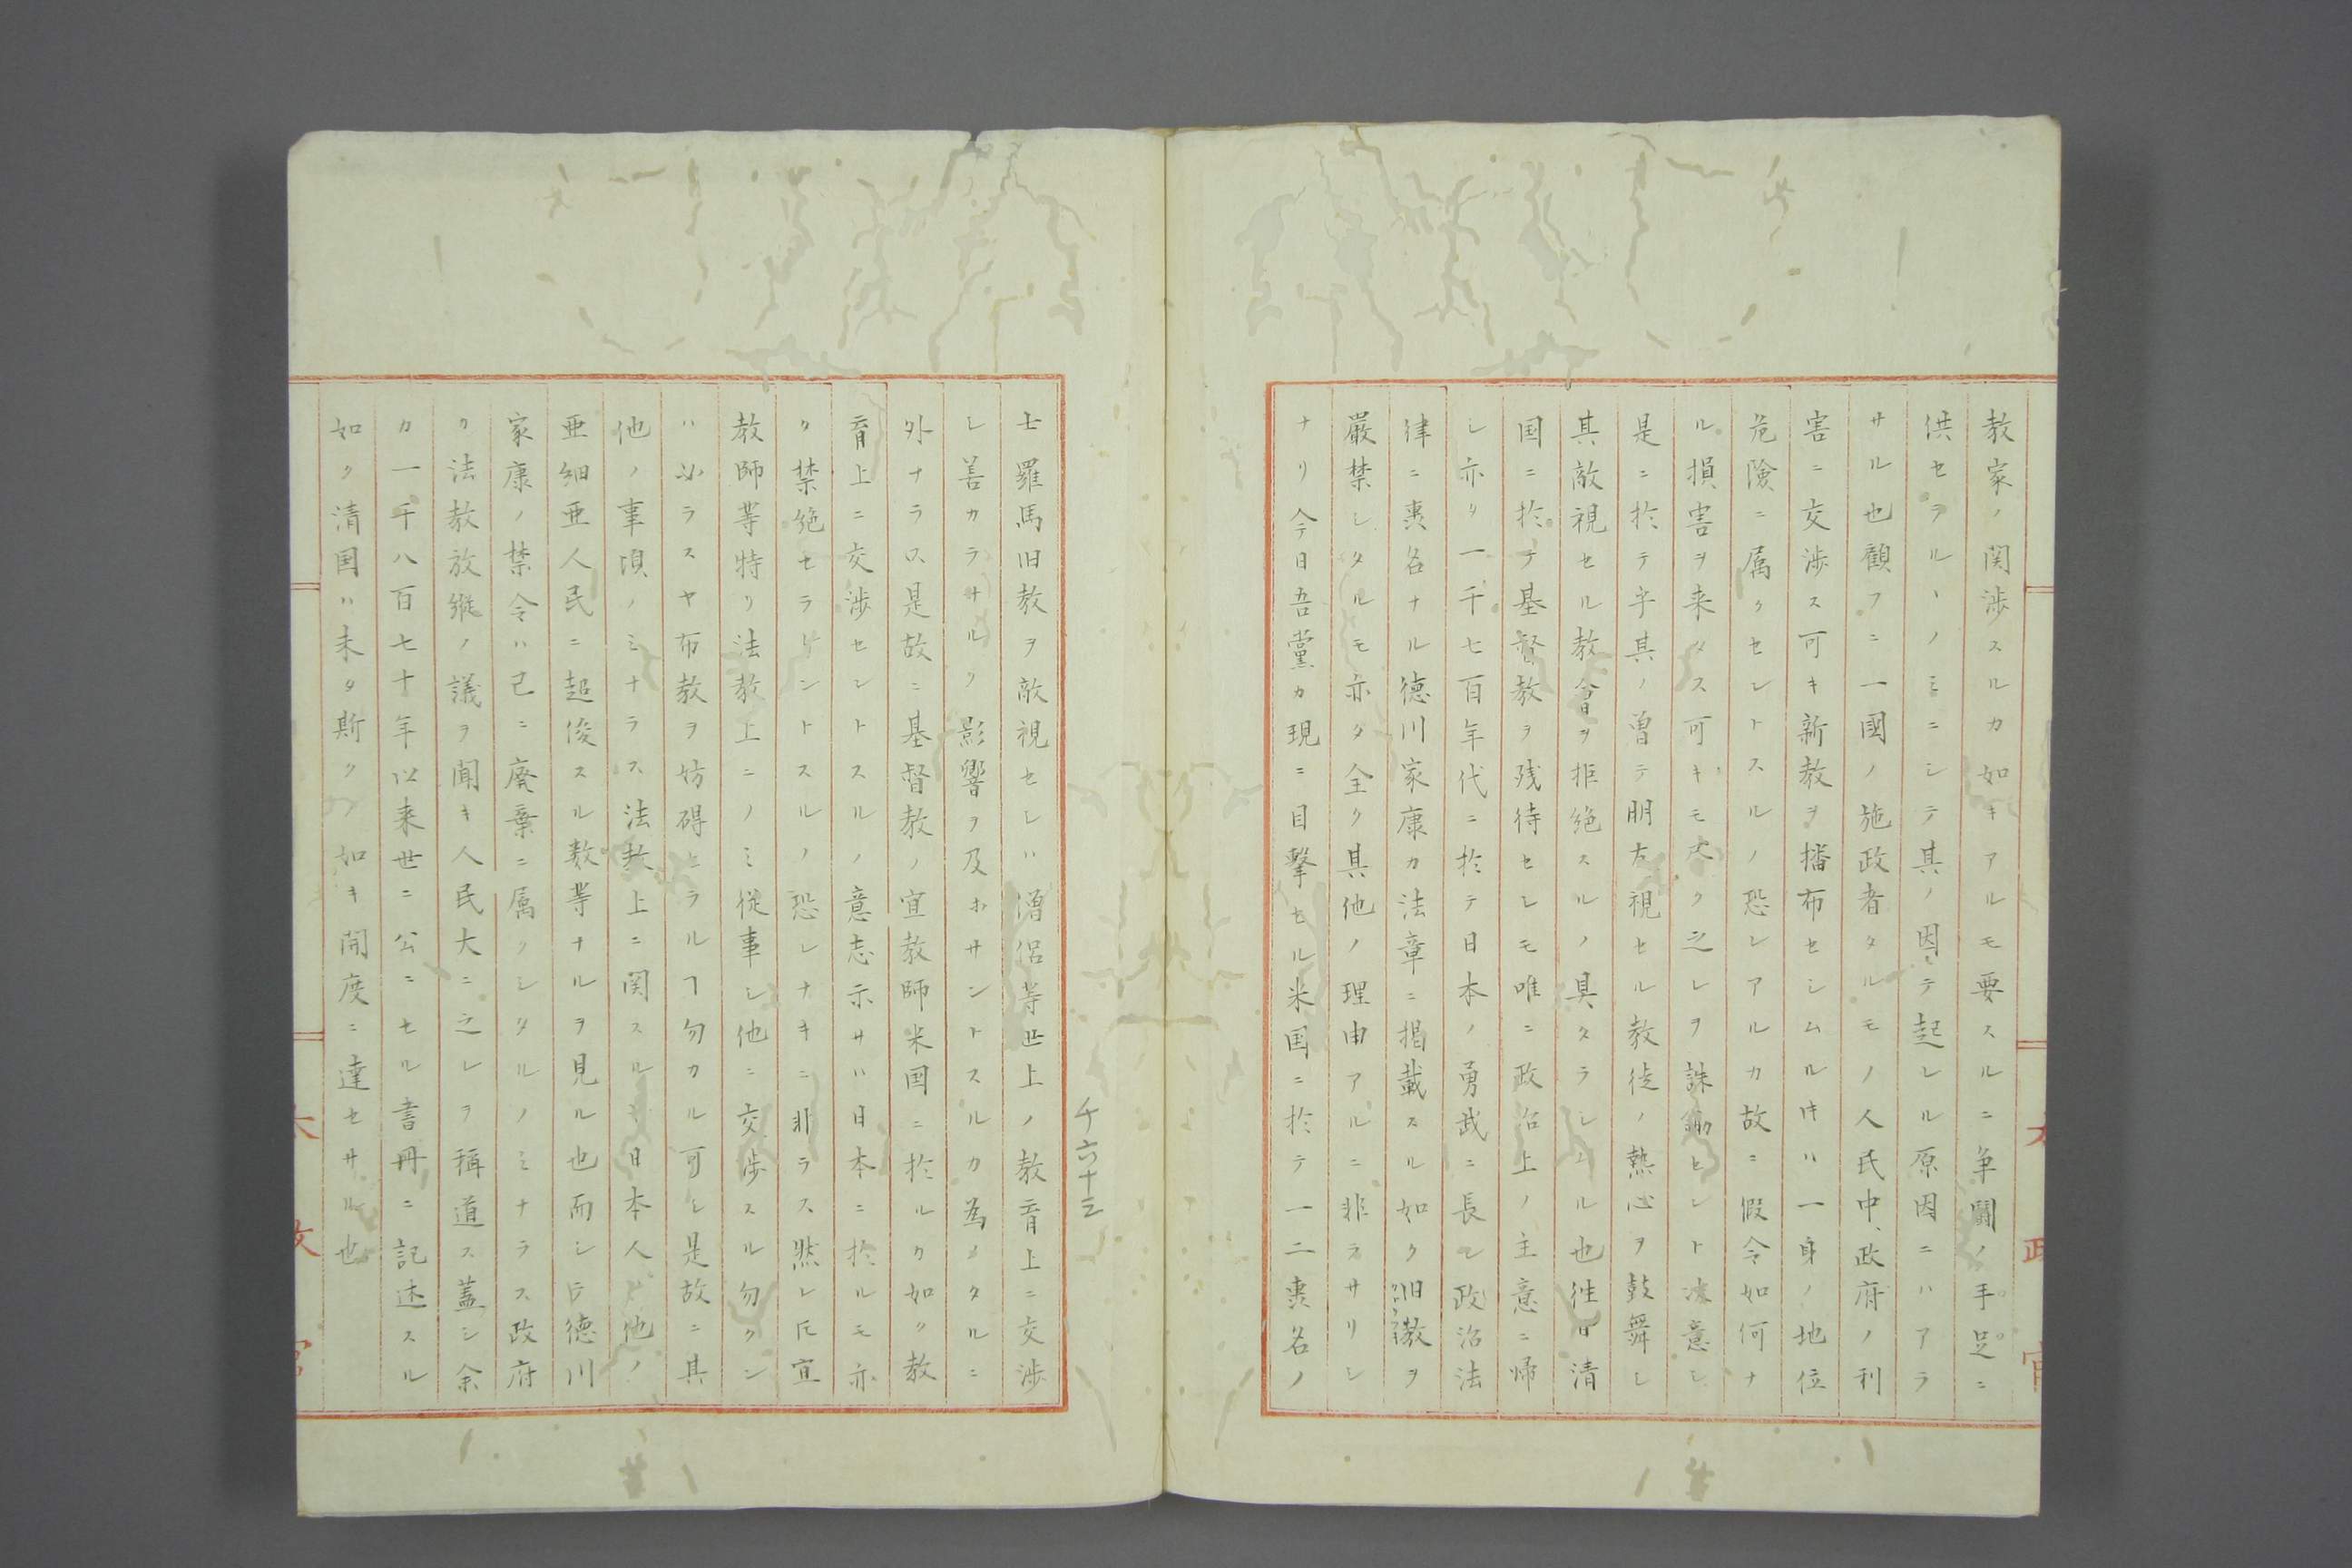 教家ノ関渉スルカ如キアルモ要スルニ争闘ノ手足ニ
供セラルヽノミニシテ其ノ因テ起レル原因ニハアラ
サル也顧フニ一國ノ施政者タルモノ人民中、政府ノ利
害ニ交渉ス可キ新教ヲ播布セシムル時ハ一身ノ地位
危険ニ属クセントスルノ恐レアルカ故ニ假令如何ナ
ル損害ヲ来タス可キモ尽ク之レヲ誅鋤セント决意シ
是ニ於テ乎其ノ曽テ朋友視セル教徒ノ熱心ヲ鼓舞シ
其敵視セル教會ヲ拒絶スルノ具タラシムル也往日清
国ニ於テ基督教ヲ残待セシモ唯ニ政治上ノ主意ニ帰
シ亦リ一千七百年代ニ於テ日本ノ勇武ニ長シ政治法
律ニ喪名ナル德川家康カ法章ニ掲載スル如ク旧教ヲ
嚴禁シタルモ亦タ全ク其他ノ理由アルニ非ラサリシ
ナリ今日吾黨カ現ニ目撃セル米国ニ於テ一二喪名ノ
千六十三
士羅馬旧教ヲ敵視セシハ僧侶等世上ノ教育上ニ交渉
シ善カラサルノ影響ヲ及ホサントスルカ為メタルニ
外ナラス是故ニ基督教ノ宣教師米国ニ於ルカ如ク教
育上ニ交渉セントスルノ意志示サハ日本ニ於ルモ亦
ク禁絶セラレントスルノ恐レナキニ非ラス然レ𪜈宣
教師等特リ法教上ニノミ従事シ他ニ交渉スル勿クン
ハ必ラスヤ布教ヲ妨碍セラルヿ勿カル可シ是故ニ其
他ノ事項ノミナラス法教上ニ関スルモ日本人ト他ノ
亜細亜人民ニ超俊スル数等ナルヲ見ル也而シテ德川
家康ノ禁令ハ已ニ廢棄ニ属クシタルノミナラス政府
ク法教放縦ノ議ヲ聞キ人民大ニ之レヲ稱道ス蓋シ余
カ一千八百七十年以来世ニ公ニセル書冊ニ記述スル
如ク清国ハ未タ斯クノ如キ開度ニ達セサル也
太政官